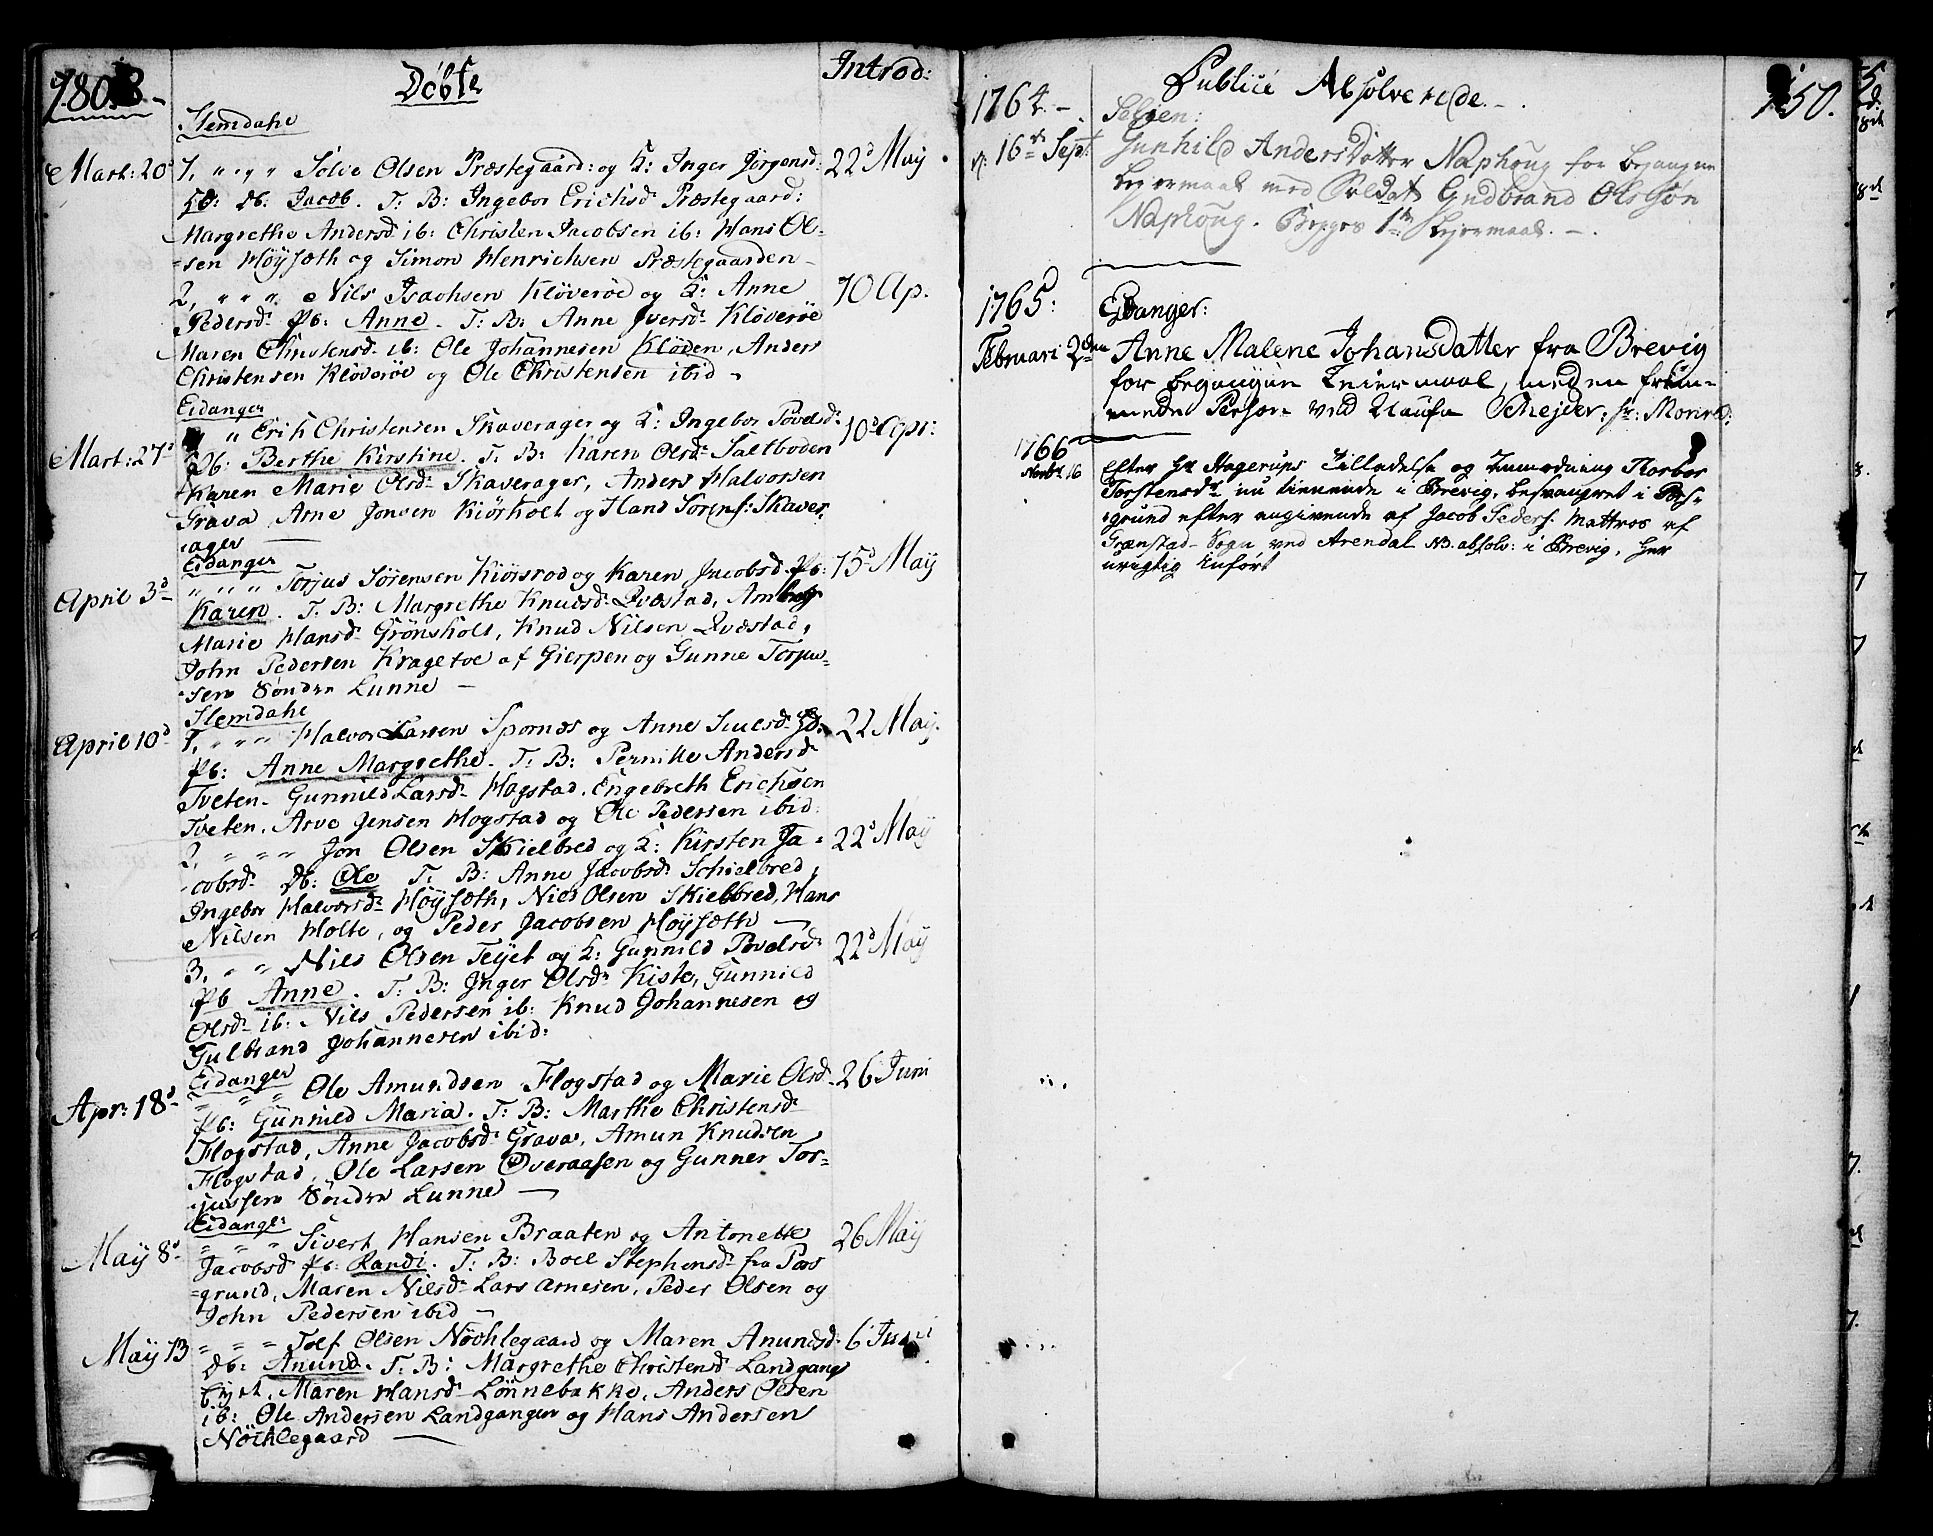 1803 -
Döbte
Introd:
Slemdahl
Mart: 20d 1, " " " Solve Olsen Præstegaard: og K: Inger Jörgensd: 22d Maÿ
50: Db: Jacob. T: B: Ingebor Erichsd: Præstegaard:
Margrethe Andersd ib: Christen Jacobsen ib: Hans Ol-
=sen Höÿsæth og Simon Henrichsen Præstegaarden -
2, " " " Nils Isachsen Klöveröe og K: Anne 10 Ap.
Pedersd: Pb: Anne. T: B: Anne Iversd: Klöveröe
Maren Christensd: ib: Ole Johannesen Klöden, Anders
Christensen Klöveröe og Ole Christensen ibid -
Eidanger
Mart: 27d " Erik Christensen Skaverager og K: Ingebor Povelsd: 10d Apr:
Pb: Berthe Kirstine. T: B: Karen Olsd: Saltboden
Karen Marie Olsd: Skaverager, Anders Halvorsen
Grava, Arne Jonsen Kiörholt og Hans Sörens: Skaver
ager —
Eidanger
April 3d " " " Torjus Sörensen Kiöisrod og Karen Jacobsd. Pb: 15d Maÿ
Karen. T: B: Margrethe Knudsd: Qvæstad,
Marie Hansd: Grönsholt, Knud Nilsen Qvæstad,
John Pedersen Krageto af Gierpen og Gunne Torju-
=sen Söndre Lunne —
Slemdahl
April 10d 1, " " " Halvor Larsen Spornæs og Anne 22 Maÿ.
Pb: Anne Margrethe. T: B: Pernille Andersd:
Tveten. Gunnild Larsd: Hogstad, Engebreth Erichsen
Tveten, Arve Jensen Hogstad og Ole Pedersen ibid:
2, " " " Jon Olsen Skielbred og K: Kirsten Ja= 22d Maÿ
cobsd: Db: Ole T: B: Anne Jacobsd: Schielbred,
Ingebor Halvorsd: Höÿsæth, Niels Olsen Skielbred, Hans
Nilsen Holte, og Peder Jacobsen Höÿsæth —
3, " " Nils Olsen Teÿet og K: Gunnild Povelsd: 22d Maÿ
Pb Anne. T: B: Inger Olsd: Kiste, Gunnild
Olsd: ib: Nils Pedersen ib: Knud Johannesen og
Gulbrand Johannesen ibid:
Eidanger
Apr: 18d " " " Ole Amundsen Flogstad og Marie Olsd: 26 Juni
Pb: Gunnild Maria. T: B: Marthe Christensd:
Flogstad, Anne Jacobsd: Grava, Amun Knudsen
Flogstad, Ole Larsen Överaasen og Gunner Tor-
jussen Söndre Lunne —
Eidang:
Maÿ 8d " " " Sivert Hansen Braaten og Antonette 26 Maÿ
Jacobsd: Pb: Randi. T: B: Boel Stephensd: fra Pors
=grund, Maren Nilsd: Lars Arnesen, Peder Olsen og
John Pedersen ibid —
Maÿ 13 " " " Tolf Olsen Nöchlegaard og Maren Anundsd: 6 Juni
Db: Anund. T: B: Margrethe Christensd: Landgangs
Maren Hansd: Lönnebakke, Anders Olsen
ib: Ole Andersen Landgangen og Hans Andersen
Nöchlegaard —
Publicé Absolverede. -
150.
1764. -
Seljen:
d: 16de Sept Gunhild Anders Datter Naphoug for begangne
lejermaal med Soldat Gudbrand Olssøn
Naphoug. Begges 1te lejermaal. —.
1765:
Eidanger:
Februari 2den Anne Malene Johansdatter fra Brevig
for begangen Leiermaal, med en frem-
mede Person ved Schejder,
1766
Novbr. 16 Efter Hr Hagerups Tilladelse og Torbor
Torstensdr nu tienende i Brevig, besvangret i Pors=
=grund efter angivende af Jacob Peders. Mattros af
Grænstad Sogn ved Arendal NB. absolv: i Brevig, her
urigtig infört